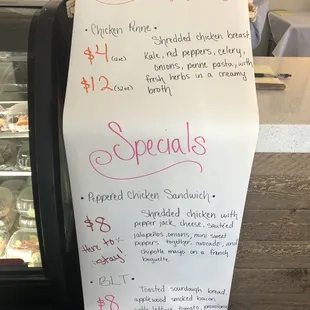 • Chicken Penne •
$4 Shredded chicken breast
kale, red peppers, celery,
$12 onions, penne pasta, with
fresh herbs in a creamy
broth
Specials
• Peppered Chicken Sandwich •
$8 Shredded chicken with
pepper jack, cheese, sautéed
jalapeños, onions, mini sweet
peppers together, avocado, and
chipotle mayo on a french
baguette.
• BLT •
$8 Toasted sourdough bread,
applewood smoked bacon,
with lettuce, tomato, provolone